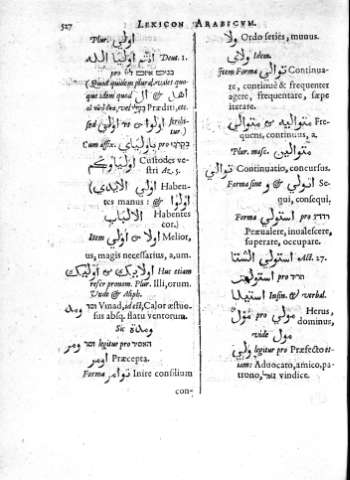 527 LEXICON ARABICUM.
Plur. اولي
انتم اوليا الله Deut. 1.
pro
(Quod quidem plurale valet quo-
que idem quod اهل & ال
Præditi, etc.
sed اولي & اولوا scribi-
tur.)
Cum affix. باوليايي pro
اولياوكم Custodes ve-
stri Ac. 5.
اولي الايدي Haben-
tes manus: &
اولوا
الالباب Habentes
cor.)
Item اولي & اولا Melior,
us, magis necessarius, a, um.
اولايك & اوليك Huc etiam
refer pronom. Plur. Illi, orum.
Unde & Aleph.
ومد Vmad, id est, Calor æstuo-
sus absq. flatu ventorum.
Sic ومدة
ومر legitur pro האמיר
اومر Præcepta.
Forma توامر Inire consilium
con-
ولا Ordo seriés, munus.
ولي Idem.
Item Forma توالي Continua-
re, continuè & frequenter
agere, frequentare, sæpe
iterare.
متواليه & متوالي Fre-
quens, continuus, a.
Plur. masc. متوالين
توالي Continuatio, concursus.
Forma sine و انولي & Se-
qui, consequi.
Forma استولي pro רדה
Prævalere, invalescere,
superare, occupare.
استولي الشتا Act. 27.
استولت pro
استيلا Infin. & verbal.
مول pro مولي Herus,
dominus,
vide مول
ولي legitur pro Præfecto et-
iam: Advocato, amico, pa-
trono, vindice.